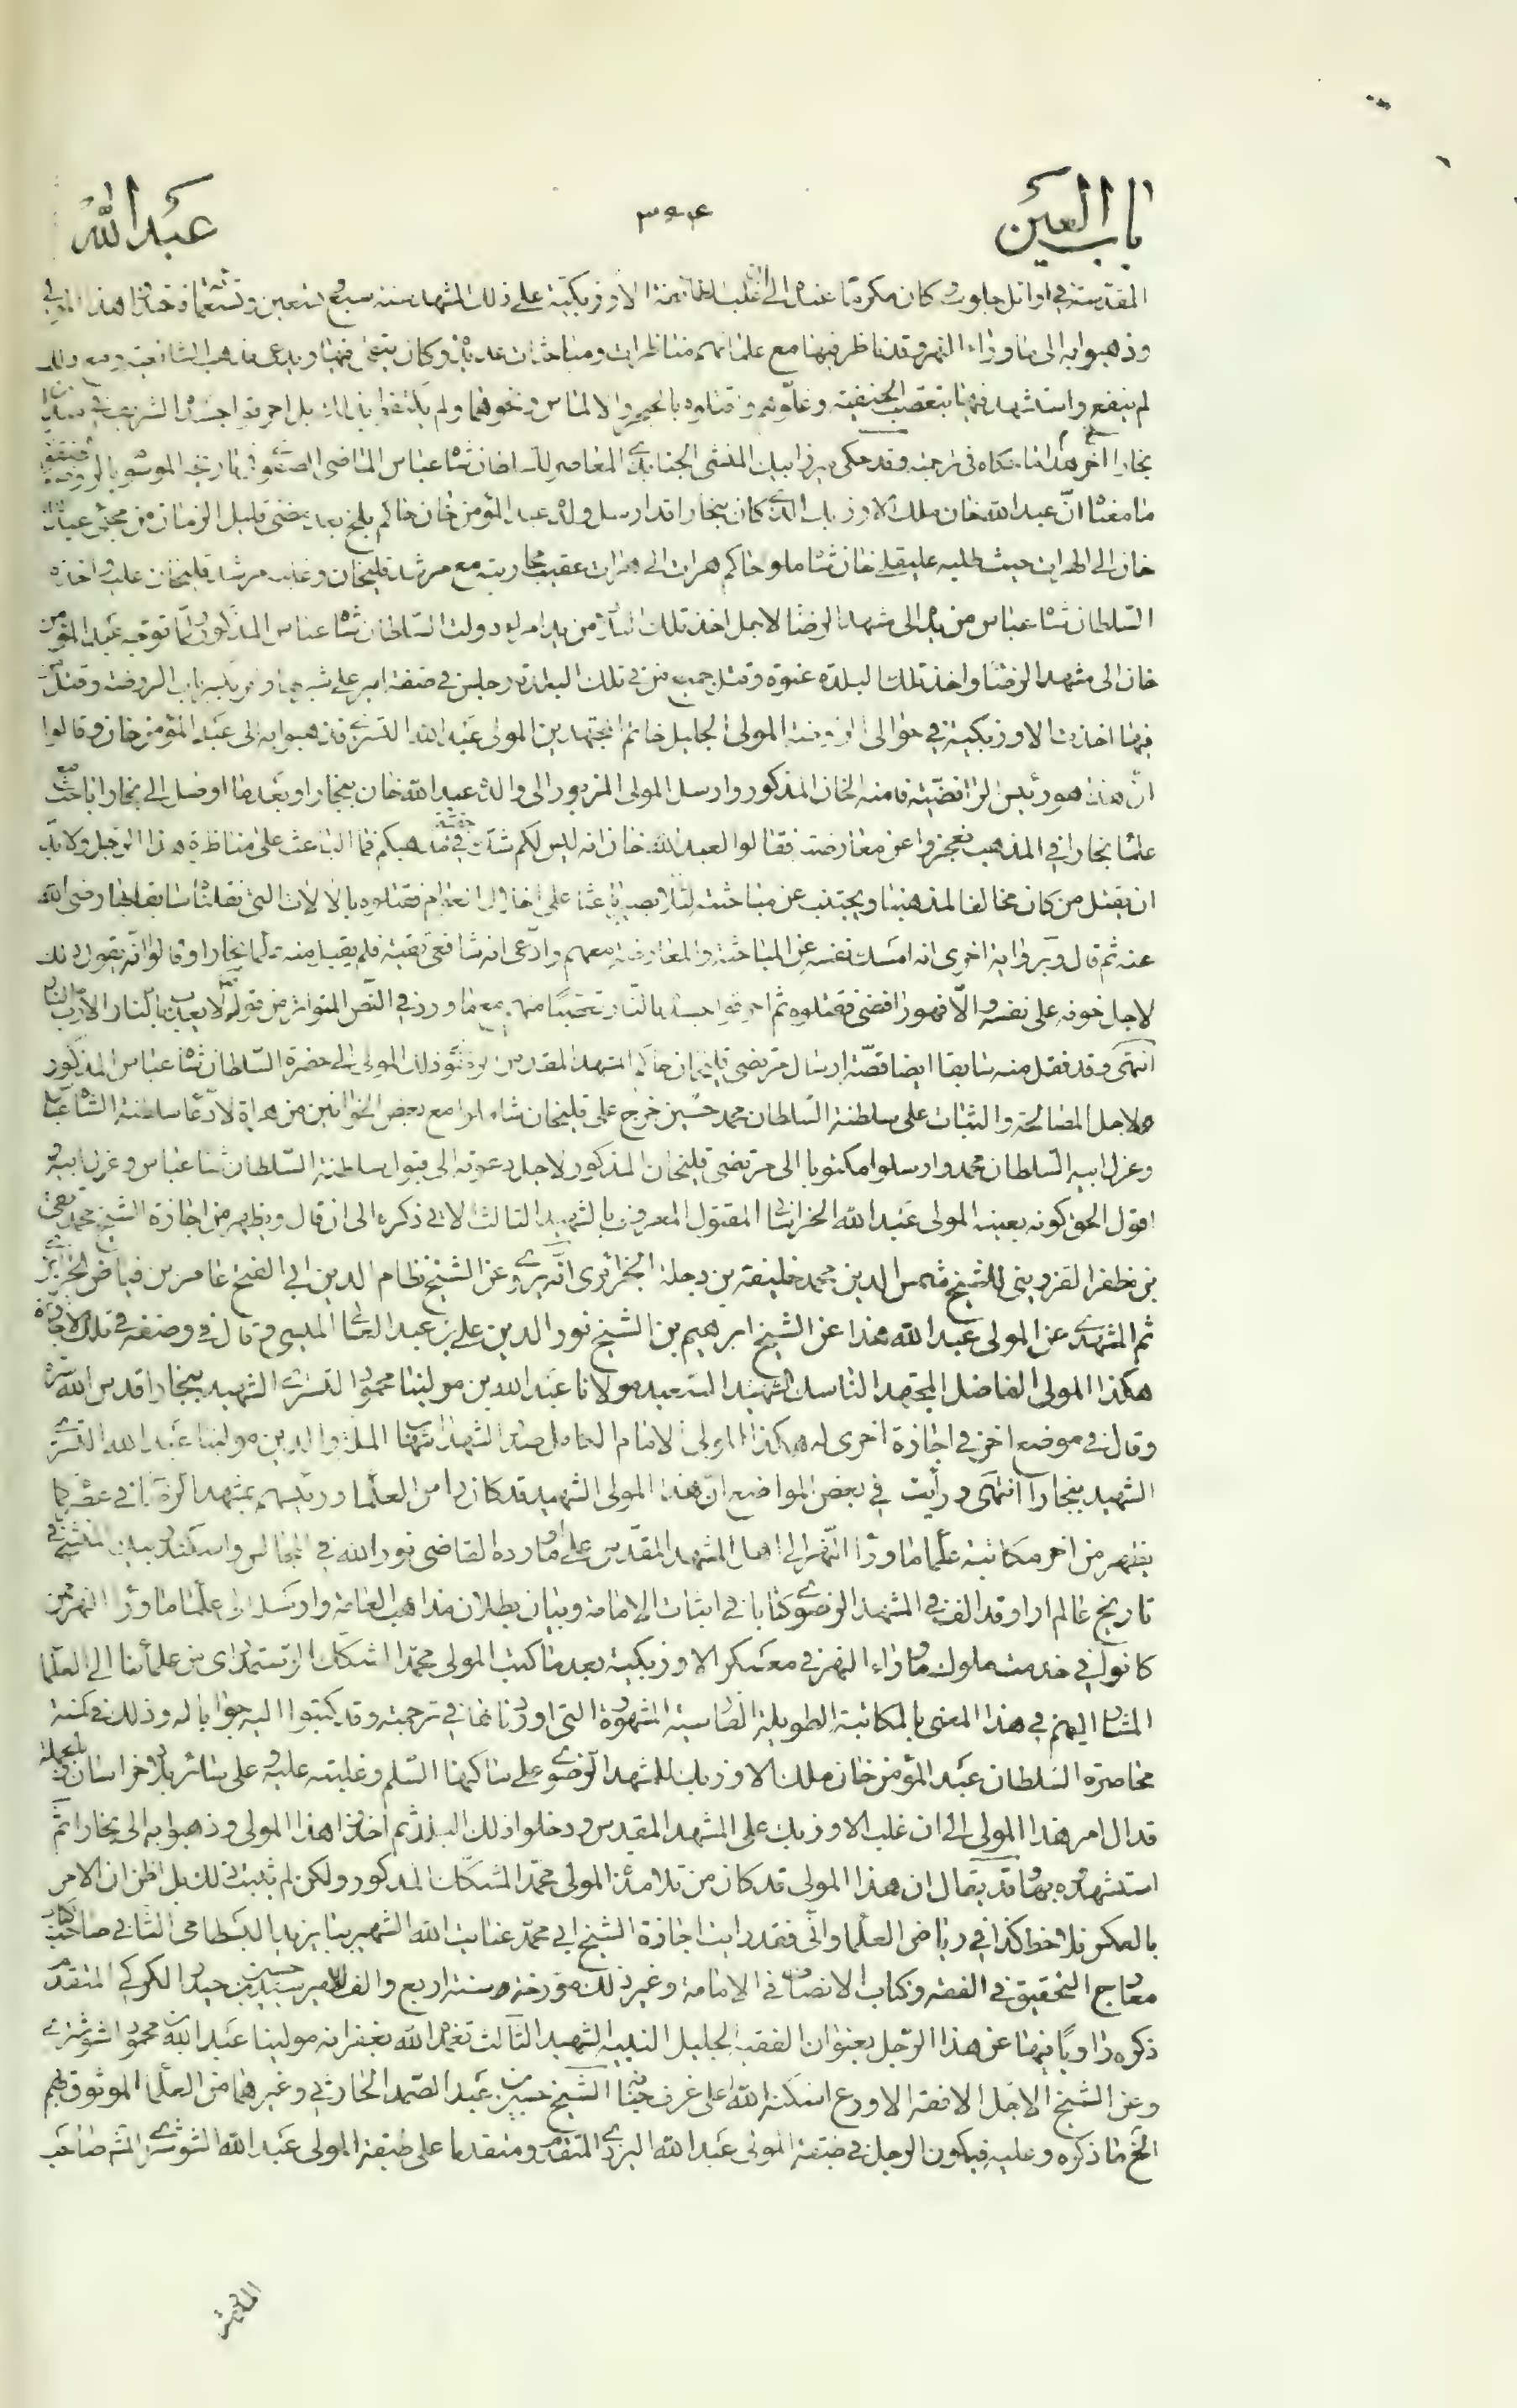 باب العين
٣٩٤
عبد الله
المقدسة في اوائل جلوسه كان مكرما عنده الى ان غلب الاوزبكية على ذلك المشهد سنة سبع تسعين وتسعمائة فاخذوا هذا المولى
وذهبوا به الى ما وراء النهر وقد ناظر فيها مع علمائهم مناظرات ومباحثات عديدة وكان يتقى فيها ويدعى مذهب الشافعية ومع ذلك
لم ينفع واستشهد فيها بتعصب الحنفية وغلوهم وقتلوه بالخنجر والالماس ونحوهما ولم يكتفوا بذلك بل احرقوا جسده الشريف في ميدان
بخارا اخر هذا ما حكاه في ترجمته وقد حكى ميرزا بيك المنشى الجنابدى المعاصر للسلطان شاه عباس الماضى الصفوى في تاريخه الموسوم بالروضة
ما معناه انّ عبد الله خان ملك الاوزبك الذى كان ببخارا قد ارسل ولده عبد المؤمن خان حاكم بلخ بعد مضى قليل الزمان من مجئ عبد الله
خان الى الهرات حيث طلبه عليقلى خان شاملو حاكم هرات الى هرات عقيب محاربته مع مرشد قليخان وغلبه مرشد قليخان عليه واخذه
السلطان شاه عباس من يده الى مشهد الرضا لاجل اخذ تلك البلدة من يد امراء دولت السلطان شاه عباس المذكور ولما توجه عبد المؤمن
خان الى مشهد الرضا واخذ تلك البلدة عنوة وقتل جميع من في تلك البلدة وجلس في صفة امير علي شير وقتل
فيها اخذت الاوزبكية في حوالى الروضة المولى الجليل خاتم المجتهدين المولى عبد الله التسترى فذهبوا به الى عبد المؤمن خان وقالوا
ان هذا هو رئيس الرافضية فامنه الخان المذكور وارسل المولى المزبور الى والده عبد الله خان ببخارا وبعد ما اوصل الى بخارا باحث مع
علماء بخارا في المذهب فعجزوا عن معارضته فقالوا لعبد الله خان انه ليس لكم شك في حقية مذهبكم فما الباعث على مناظرة هذا الرجل ولا بد
ان يقتل من كان مخالفا لمذهبنا ويجتنب عن مباحثته لئلا يصير باعثا على اخلال العوام فقتلوه بالالات التى نقلناها سابقا رضى الله
عنه ثم قال وبرواية اخرى انه امسك نفسه عن المباحثة والمعارضة معهم وادعى انه شافعى تقية فلم يقبل منه علماء بخارا وقالوا انه يقول ذلك
لاجل خوفه على نفسه والا فهو رافضى فقتلوه ثم احرقوا جسده بالنار تعصبا منهم مع ما ورد في النص المتواتر من قوله لا يعذب بالنار الا رب النار
انتهى وقد نقل منه سابقا ايضا قصة ارسال مرتضى قليخان حاكم المشهد المقدس الرضوى ذلك المولى الى حضرة السلطان شاه عباس المذكور
ولاجل المصالحة والثبات على سلطنة السلطان محمد حين خرج على قليخان شاملو مع بعض الخوانين من هراة لادعاء سلطنة الشاه عباس
وعزل ابيه السلطان محمد وارسلوا مكتوبا الى مرتضى قليخان المذكور لاجل دعوته الى قبول سلطنة السلطان شاه عباس وعزل ابيه و
اقول الحق كونه بعينه المولى عبد الله الخراسانى المقتول المعروف بالشهيد الثالث الاتى ذكره الى ان قال ويظهر من اجازة الشيخ محمد تقى
بن مظفر القزوينى للشيخ شمس الدين محمد خليفة بن دجلة الجزائرى انه يروى عن الشيخ نظام الدين ابي الفتح عامر بن فياض الجزائرى
ثم المشهدى عن المولى عبد الله هذا عن الشيخ ابرهيم بن الشيخ نور الدين على بن عبد العالى الميسى وقال في وصفه في تلك الاجازة
هكذا المولى الفاضل المجتهد الناسك الشهيد السعيد مولانا عبد الله بن مولينا محمود التسترى الشهيد ببخارا قدس الله سره
وقال في موضع اخر في اجازة اخرى له هكذا المولى الامام العامل صدر الشهداء شهاب الملة والدين مولينا عبد الله التسترى
الشهيد ببخارا انتهى ورأيت في بعض المواضع ان هذا المولى الشهيد قد كان رأس العلماء ورئيسهم بمشهد الرضا في عصره كما
يظهر من اخر مكاتبة علماء ما وراء النهر الى اهل المشهد المقدس على ما اورده القاضى نور الله في المجالس واسكندر بيك المنشى في
تاريخ عالم ارا وقد الف في المشهد الرضوى كتابا في اثبات الامامة وبيان بطلان مذاهب العامة وارسله الى علماء ما وراء النهر ممن
كانوا في خدمت ملوك ما وراء النهر في معسكر الاوزبكية بعد ما كتب المولى محمد المشكك الرستمدارى من علمائنا الى العلماء
المشار اليهم في هذا المعنى بالمكاتبة الطويلة الفارسية المشهورة التى اوردناها في ترجمته وقد كتبوا اليه جوابا له وذلك في كمنة
محاصرة السلطان عبد المؤمن خان ملك الاوزبك للمشهد الرضوى على ساكنها السلم وغلبته عليه وعلى سائر بلاد خراسان وبالجملة
قد ال امر هذا المولى الى ان غلب الاوزبك على المشهد المقدس ودخلوا ذلك البلد ثم اخذوا هذا المولى وذهبوا به الى بخارا ثم
استشهدوه بها وقد يقال ان هذا المولى قد كان من تلامذة المولى محمد المشكك المذكور ولكن لم يثبت ذلك بل اظن ان الامر
بالعكس فلاحظ كذا في رياض العلماء وانى فقد رايت اجازة الشيخ ابي محمد عنايت الله الشهير ببايزيد البسطامى الثانى صاحب كتاب
معراج التحقيق في الفقه وكتاب الانصاف في الامامة وغير ذلك مورخة سنة اربع والف للامير سيد حسين بن حيدر الكركى المتقدم
ذكره راويا فيها عن هذا الرجل بعنوان الفقيه الجليل النبيه الشهيد الثالث تغمده الله بغفرانه مولينا عبد الله بن محمود الشوشترى
وعن الشيخ الاجل الافقه الاورع اسكنه الله اعلى غرف جنانه الشيخ حسين بن عبد الصمد الحارثى وغيرهما من العلماء الموثوق بهم
الخ ما ذكره وعليه فيكون الرجل في طبقة المولى عبد الله اليزدى المتقدم ومتقدما على طبقة المولى عبد الله الشوشترى المشهور صاحب